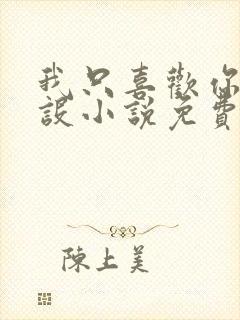 我只喜歡你
設小說免費
陳上美